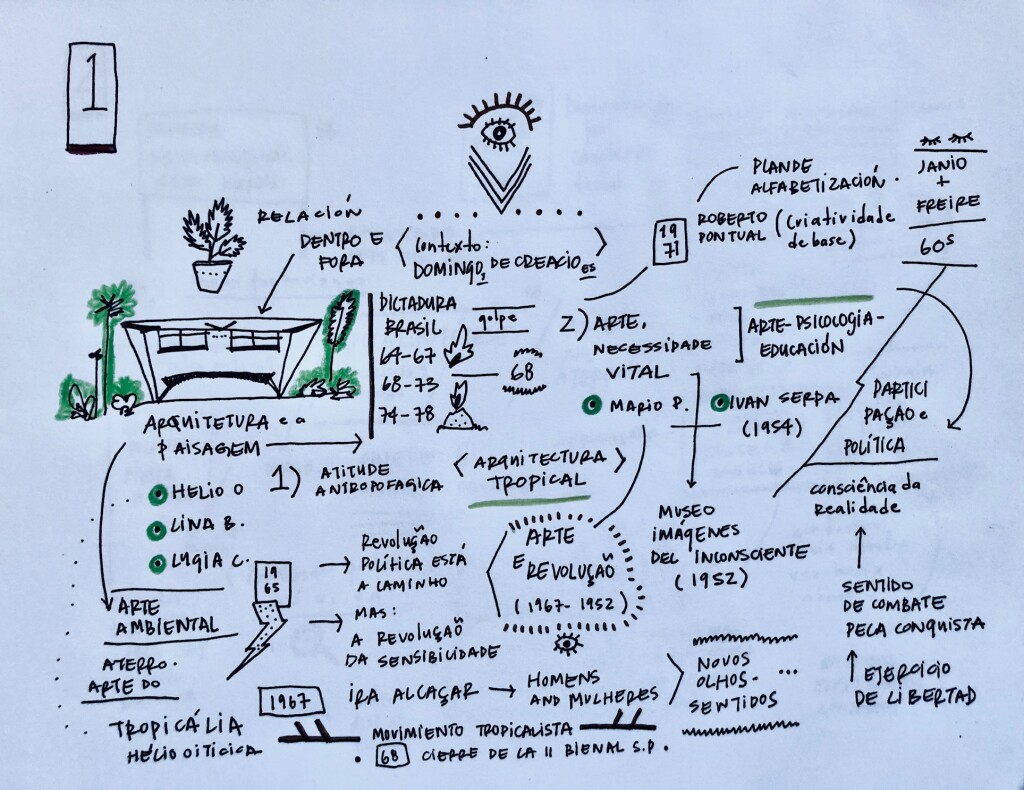 1
RELACIÓN
DENTRO E
FORA
Contexto:
DOMINGOS DE CREACIO es
PLANDE
ALFABETIZACIÓN.
1971
ROBERTO
PONTUAL
(Criatividade
de base)
JANIO
+
FREIRE
60s
DICTADURA
BRASIL
64-67
68-73
74-78
golpe
68
2) ARTE,
NECESSIDADE
VITAL
ARTE-PSICOLOGIA-
EDUCACIÓN
MARIO P.
IVAN SERPA
(1954)
PARTICI
PAÇÃO e
POLÍTICA
ARQUITETURA e a
PAISAGEM
1) ATITUDE
ANTROPOFAGICA
<ARQUITECTURA
TROPICAL>
HELIO O
LINA B.
LYGIA C.
ARTE
AMBIENTAL
ATERRO.
ARTE DO
TROPICÁLIA
HÉLIO OITICICA
1965
Revolução
POLÍTICA ESTÁ
A CAMINHO
MAS:
A REVOLUÇÃO
DA SENSIBILIDADE
ARTE
E REVOLUÇÃO
(1967-1952)
MUSEO
IMÁGENES
DEL INCONSCIENTE
(1952)
consciência da
Realidade
SENTIDO
DE COMBATE
PECA CONQUISTA
EJERCICIO
DE LIBERTAD
1967
IRA ALCAÇAR
HOMENS
AND MULHERES
NOVOS
OLHOS-
SENTIDOS
...
MOVIMIENTO TROPICALISTA
68 CIERRE DE LA II BIENAL S.P.